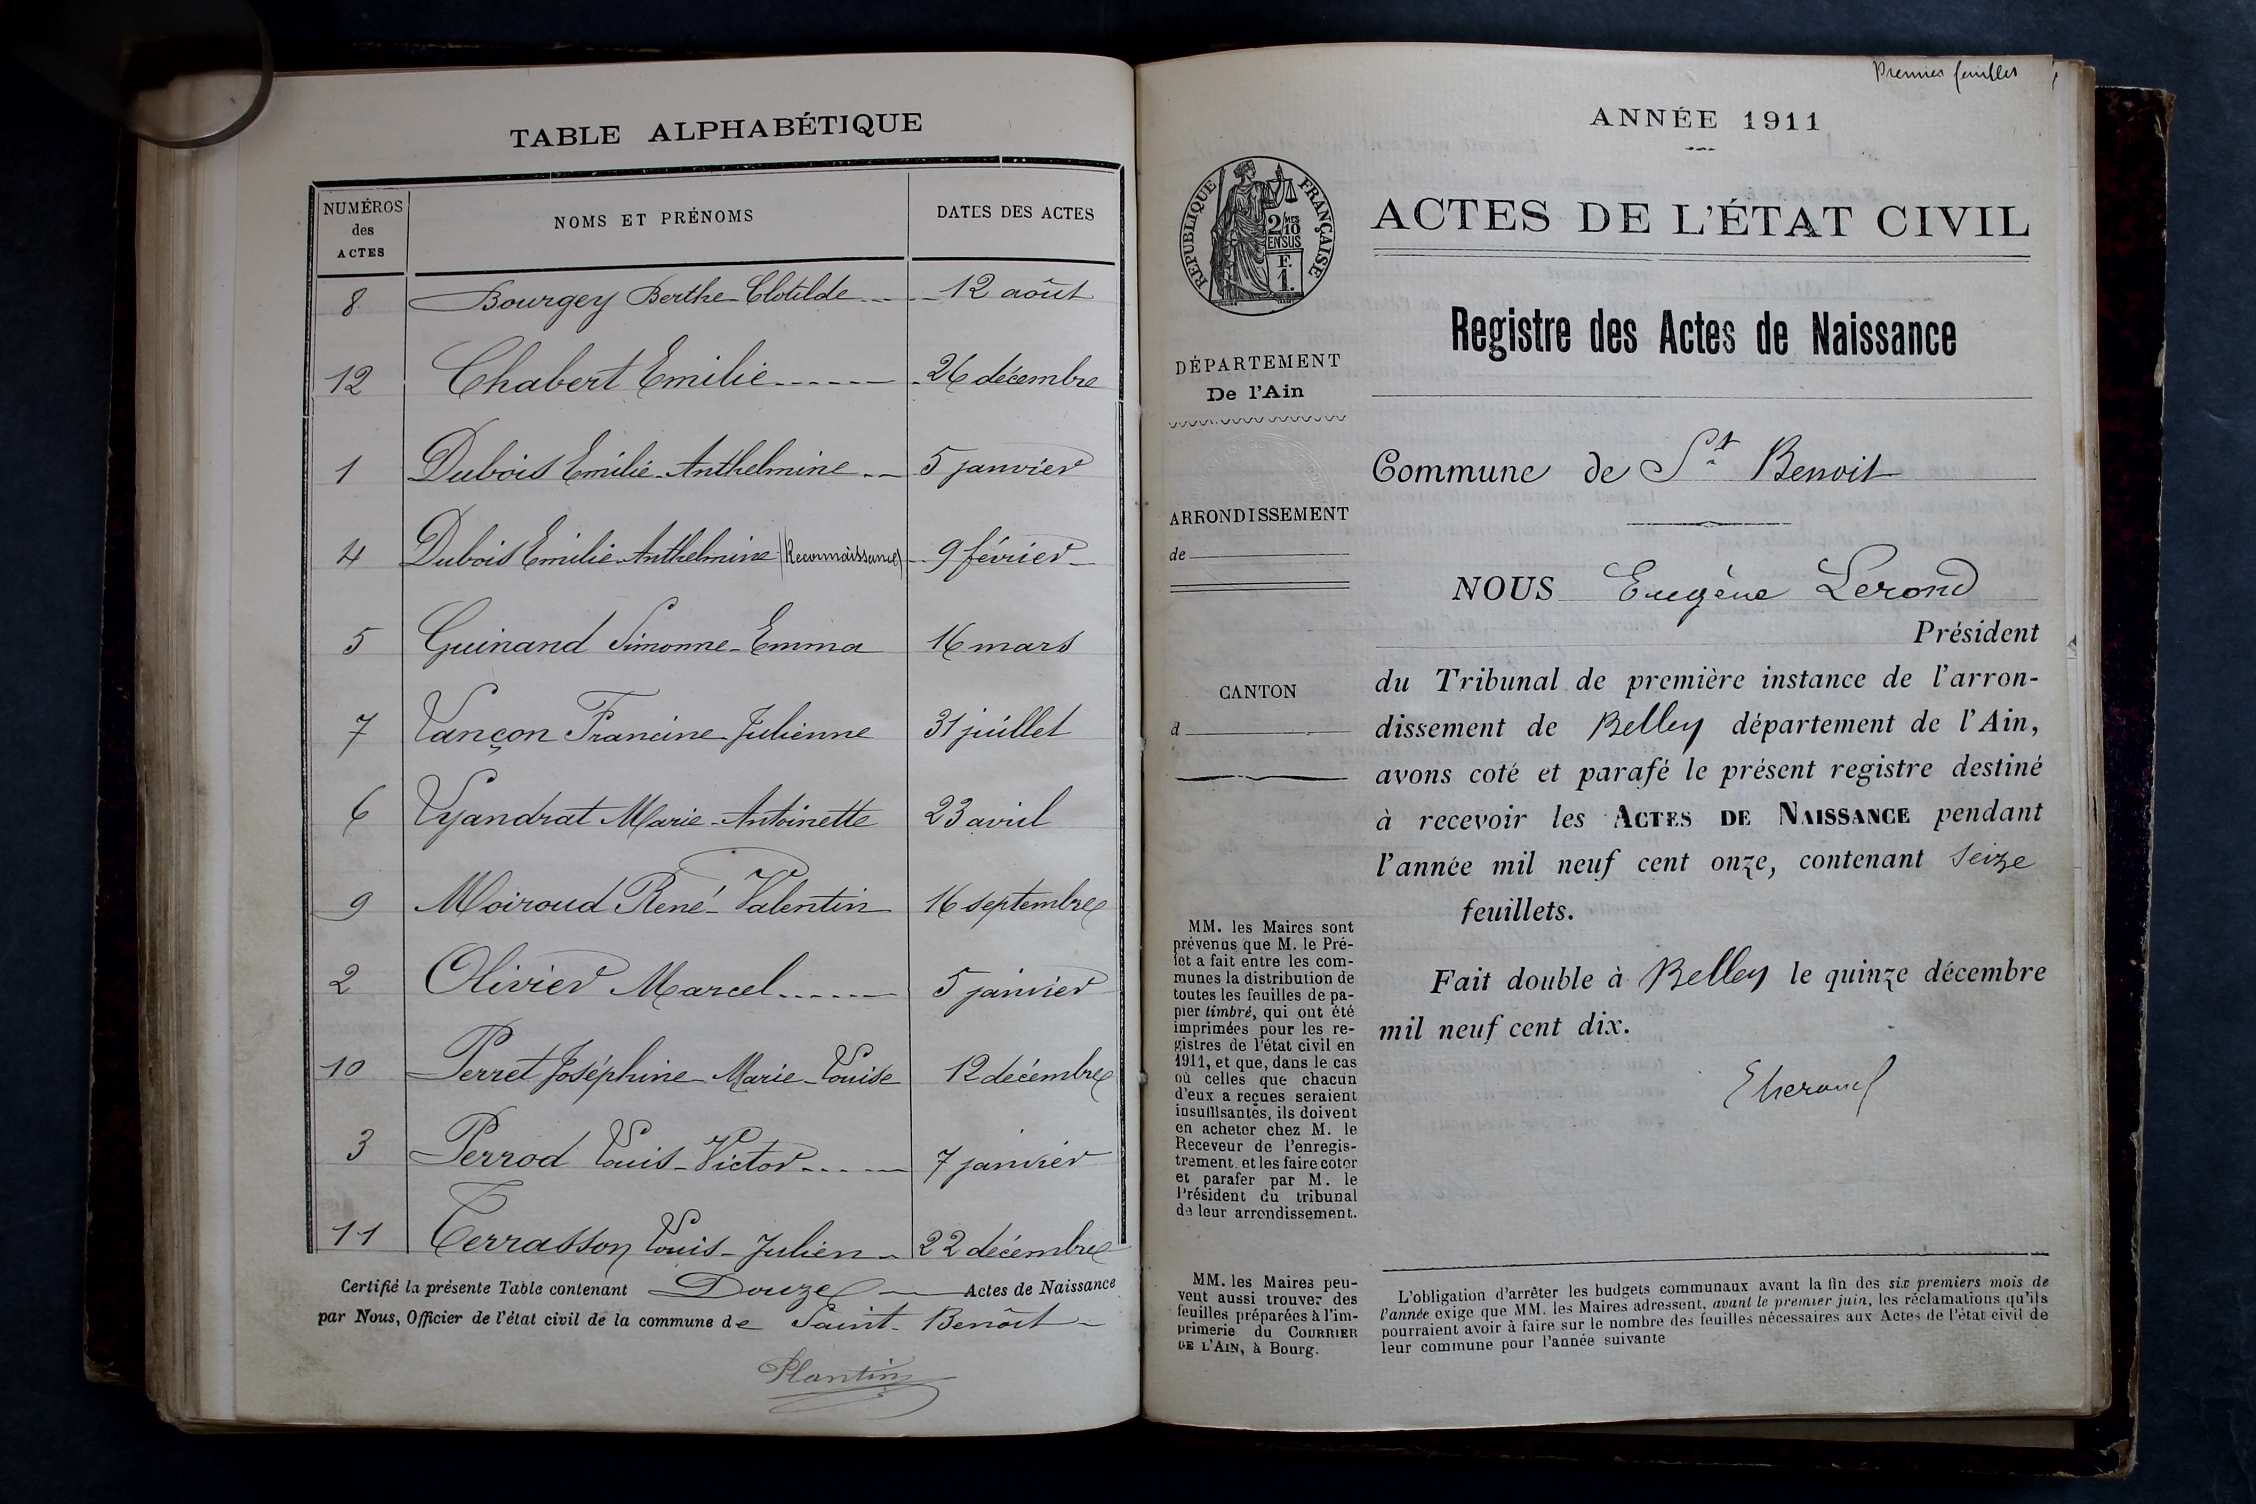 TABLE ALPHABÉTIQUE
NUMÉROS des ACTES NOMS ET PRÉNOMS DATES DES ACTES
8 Bourgey Berthe-Clotilde 12 août
12 Chabert Emilie 26 décembre
1 Dubois Emilie-Anthelmine 5 janvier
4 Dubois Emilie-Anthelmine (Reconnaissance) 9 février
5 Guinand Simonne-Emma 16 mars
7 Lançon Francine-Julienne 31 juillet
6 Lyandrat Marie-Antoinette 23 avril
9 Moiroud René-Valentin 16 septembre
2 Olivier Marcel 5 janvier
10 Perret Joséphine-Marie-Louise 12 décembre
3 Perrod Louis-Victor 7 janvier
11 Terrasson Louis-Julien 22 décembre
Certifié la présente Table contenant Douze Actes de Naissance
par Nous, Officier de l'état civil de la commune de Saint-Benoît
Plantin
Premier feuillet
ANNÉE 1911
RÉPUBLIQUE FRANÇAISE
2/10 MES
EN SUS
F.
1.
ACTES DE L'ÉTAT CIVIL
Registre des Actes de Naissance
DÉPARTEMENT
De l'Ain
ARRONDISSEMENT
de
CANTON
d
Commune de St Benoit
NOUS Eugène Lerond
Président
du Tribunal de première instance de l'arron-
dissement de Belley département de l'Ain,
avons coté et parafé le présent registre destiné
à recevoir les ACTES DE NAISSANCE pendant
l'année mil neuf cent onze, contenant seize
feuillets.
Fait double à Belley le quinze décembre
mil neuf cent dix.
MM. les Maires sont
prévenus que M. le Pré-
fet a fait entre les com-
munes la distribution de
toutes les feuilles de pa-
pier timbré, qui ont été
imprimées pour les re-
gistres de l'état civil en
1911, et que, dans le cas
où celles que chacun
d'eux a reçues seraient
insuffisantes, ils doivent
en acheter chez M. le
Receveur de l'enregis-
trement et les faire coter
et parafer par M. le
Président du tribunal
de leur arrondissement.
MM. les Maires peu-
vent aussi trouver des
feuilles préparées à l'im-
primerie du COURRIER
DE L'AIN, à Bourg.
L'obligation d'arrêter les budgets communaux avant la fin des six premiers mois de
l'année exige que MM. les Maires adressent, avant le premier juin, les réclamations qu'ils
pourraient avoir à faire sur le nombre des feuilles nécessaires aux Actes de l'état civil de
leur commune pour l'année suivante